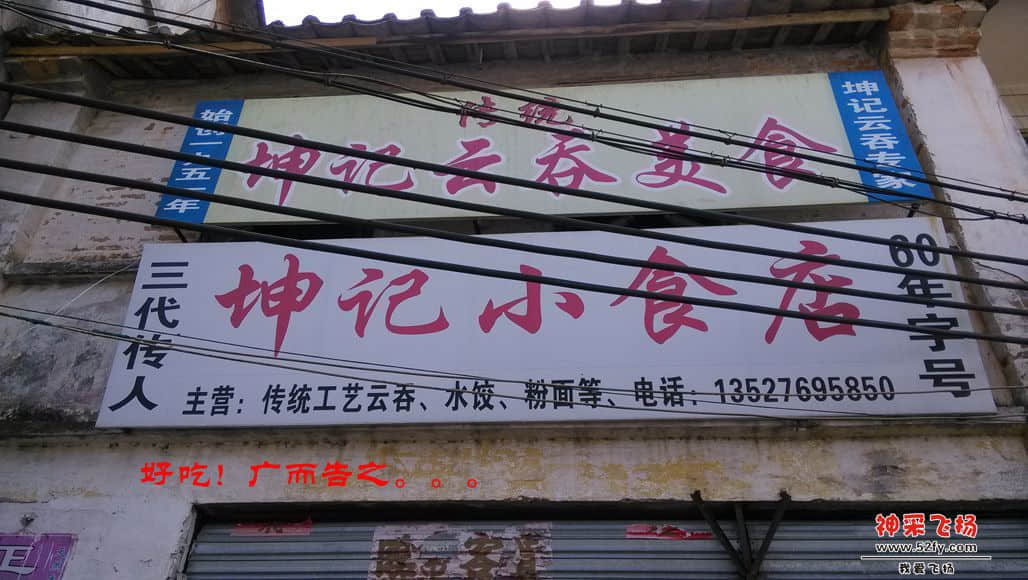 始创一九五一年
传统
坤记云吞美食
坤记云吞专家
三代传人
坤记小食店
60年字号
主营：传统工艺云吞、水饺、粉面等、电话：13527695850
好吃！广而告之。。。
正
神采飞扬
www.52fy.com
我爱飞扬